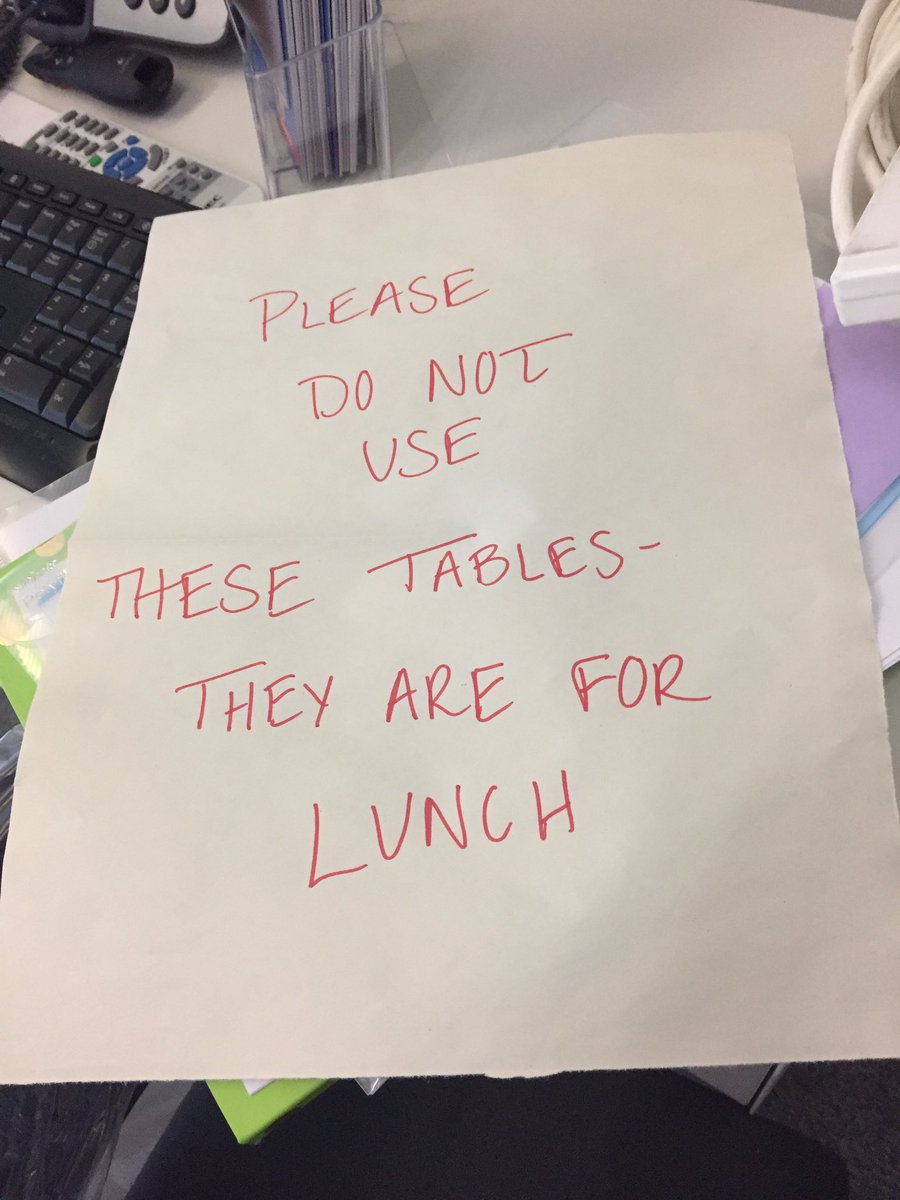 PLEASE
DO NOT
USE
THESE TABLES-
THEY ARE FOR
LUNCH